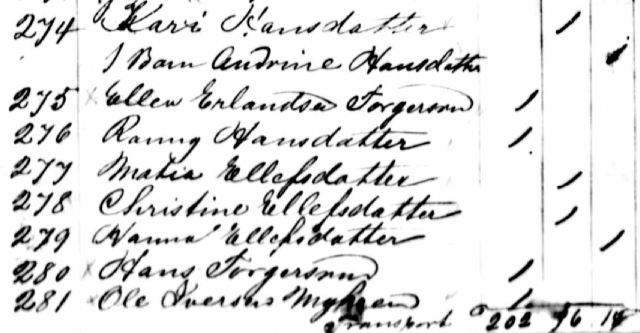 274 Kari Hansdatter
1 Barn Andrine Hansdatter
275 Ellen Erlandsen Torgersen
276 Ranny Hansdatter
277 Matia Ellefsdatter
278 Christine Ellefsdatter
279 Hanna Ellefsdatter
280 Hans Torgersen
281 Ole Iversen
Transport 202 76